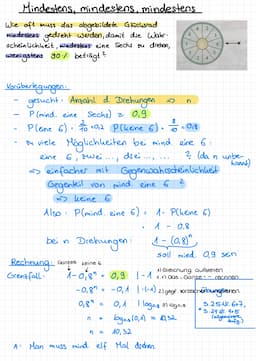 Mindestens, mindestens, mindestens
Wie oft muss das abgebildete Glücksrad
mindestens gedreht werden, damit die Wahr-
scheinlichkeit, mindestens eine Sechs zu drehen,
wenigstens 90% beträgt?
Vorüberlegungen:
- gesucht: Anzahl d. Drehungen ⇒ n
- P(mind. eine Sechs) = 0,9
- P(eine 6) = 2/10 = 0,2 P(keine 6) = 8/10 = 0,8
- viele Möglichkeiten bei mind. eine 6:
eine 6, zwei ..., drei ..., ... ? (da n unbe-
kannt)
⇒ einfacher mit Gegenwahrscheinlichkeit
Gegenteil von mind. eine 6 ?
⇒ keine 6
Also: P(mind. eine 6) = 1 - P(keine 6)
= 1 - 0,8
bei n Drehungen: 1 - (0,8)ⁿ
soll mind. 0,9 sein
Rechnung: Ganzes keine 6
Grenzfall: 1 - 0,8ⁿ = 0,9 | -1
-0,8ⁿ = -0,1 | :(-1)
0,8ⁿ = 0,1 | log₀,₈
n = log₀,₈(0,1) = 10,32
n = 10,32
A: Man muss mind. elf Mal drehen.
1) Gleichung aufstellen
Übungsaufgaben: